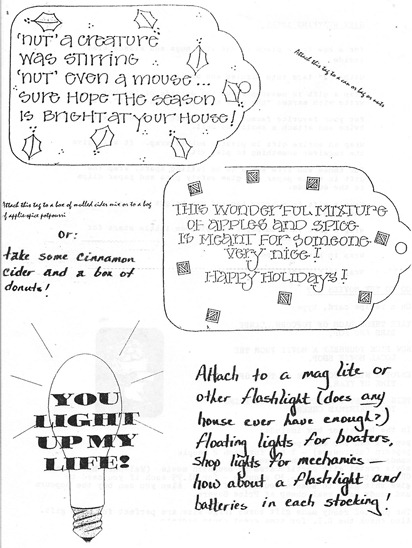 'NUT' A CREATURE
WAS STIRRING
'NUT' EVEN A MOUSE...
SURE HOPE THE SEASON
IS BRIGHT AT YOUR HOUSE!
Attach this tag to a can or bag of nuts
Attach this tag to a box of mulled cider mix or to a bag
of apple-spice potpourri
or:
take some cinnamon
cider and a box of
donuts!
THIS WONDERFUL MIXTURE
OF APPLES AND SPICE
IS MEANT FOR SOMEONE
VERY NICE!
HAPPY HOLIDAYS!
YOU
LIGHT
UP MY
LIFE!
Attach to a mag lite or
other flashlight (does any
house ever have enough?)
Floating lights for boaters,
shop lights for mechanics —
how about a flashlight and
batteries in each stocking!